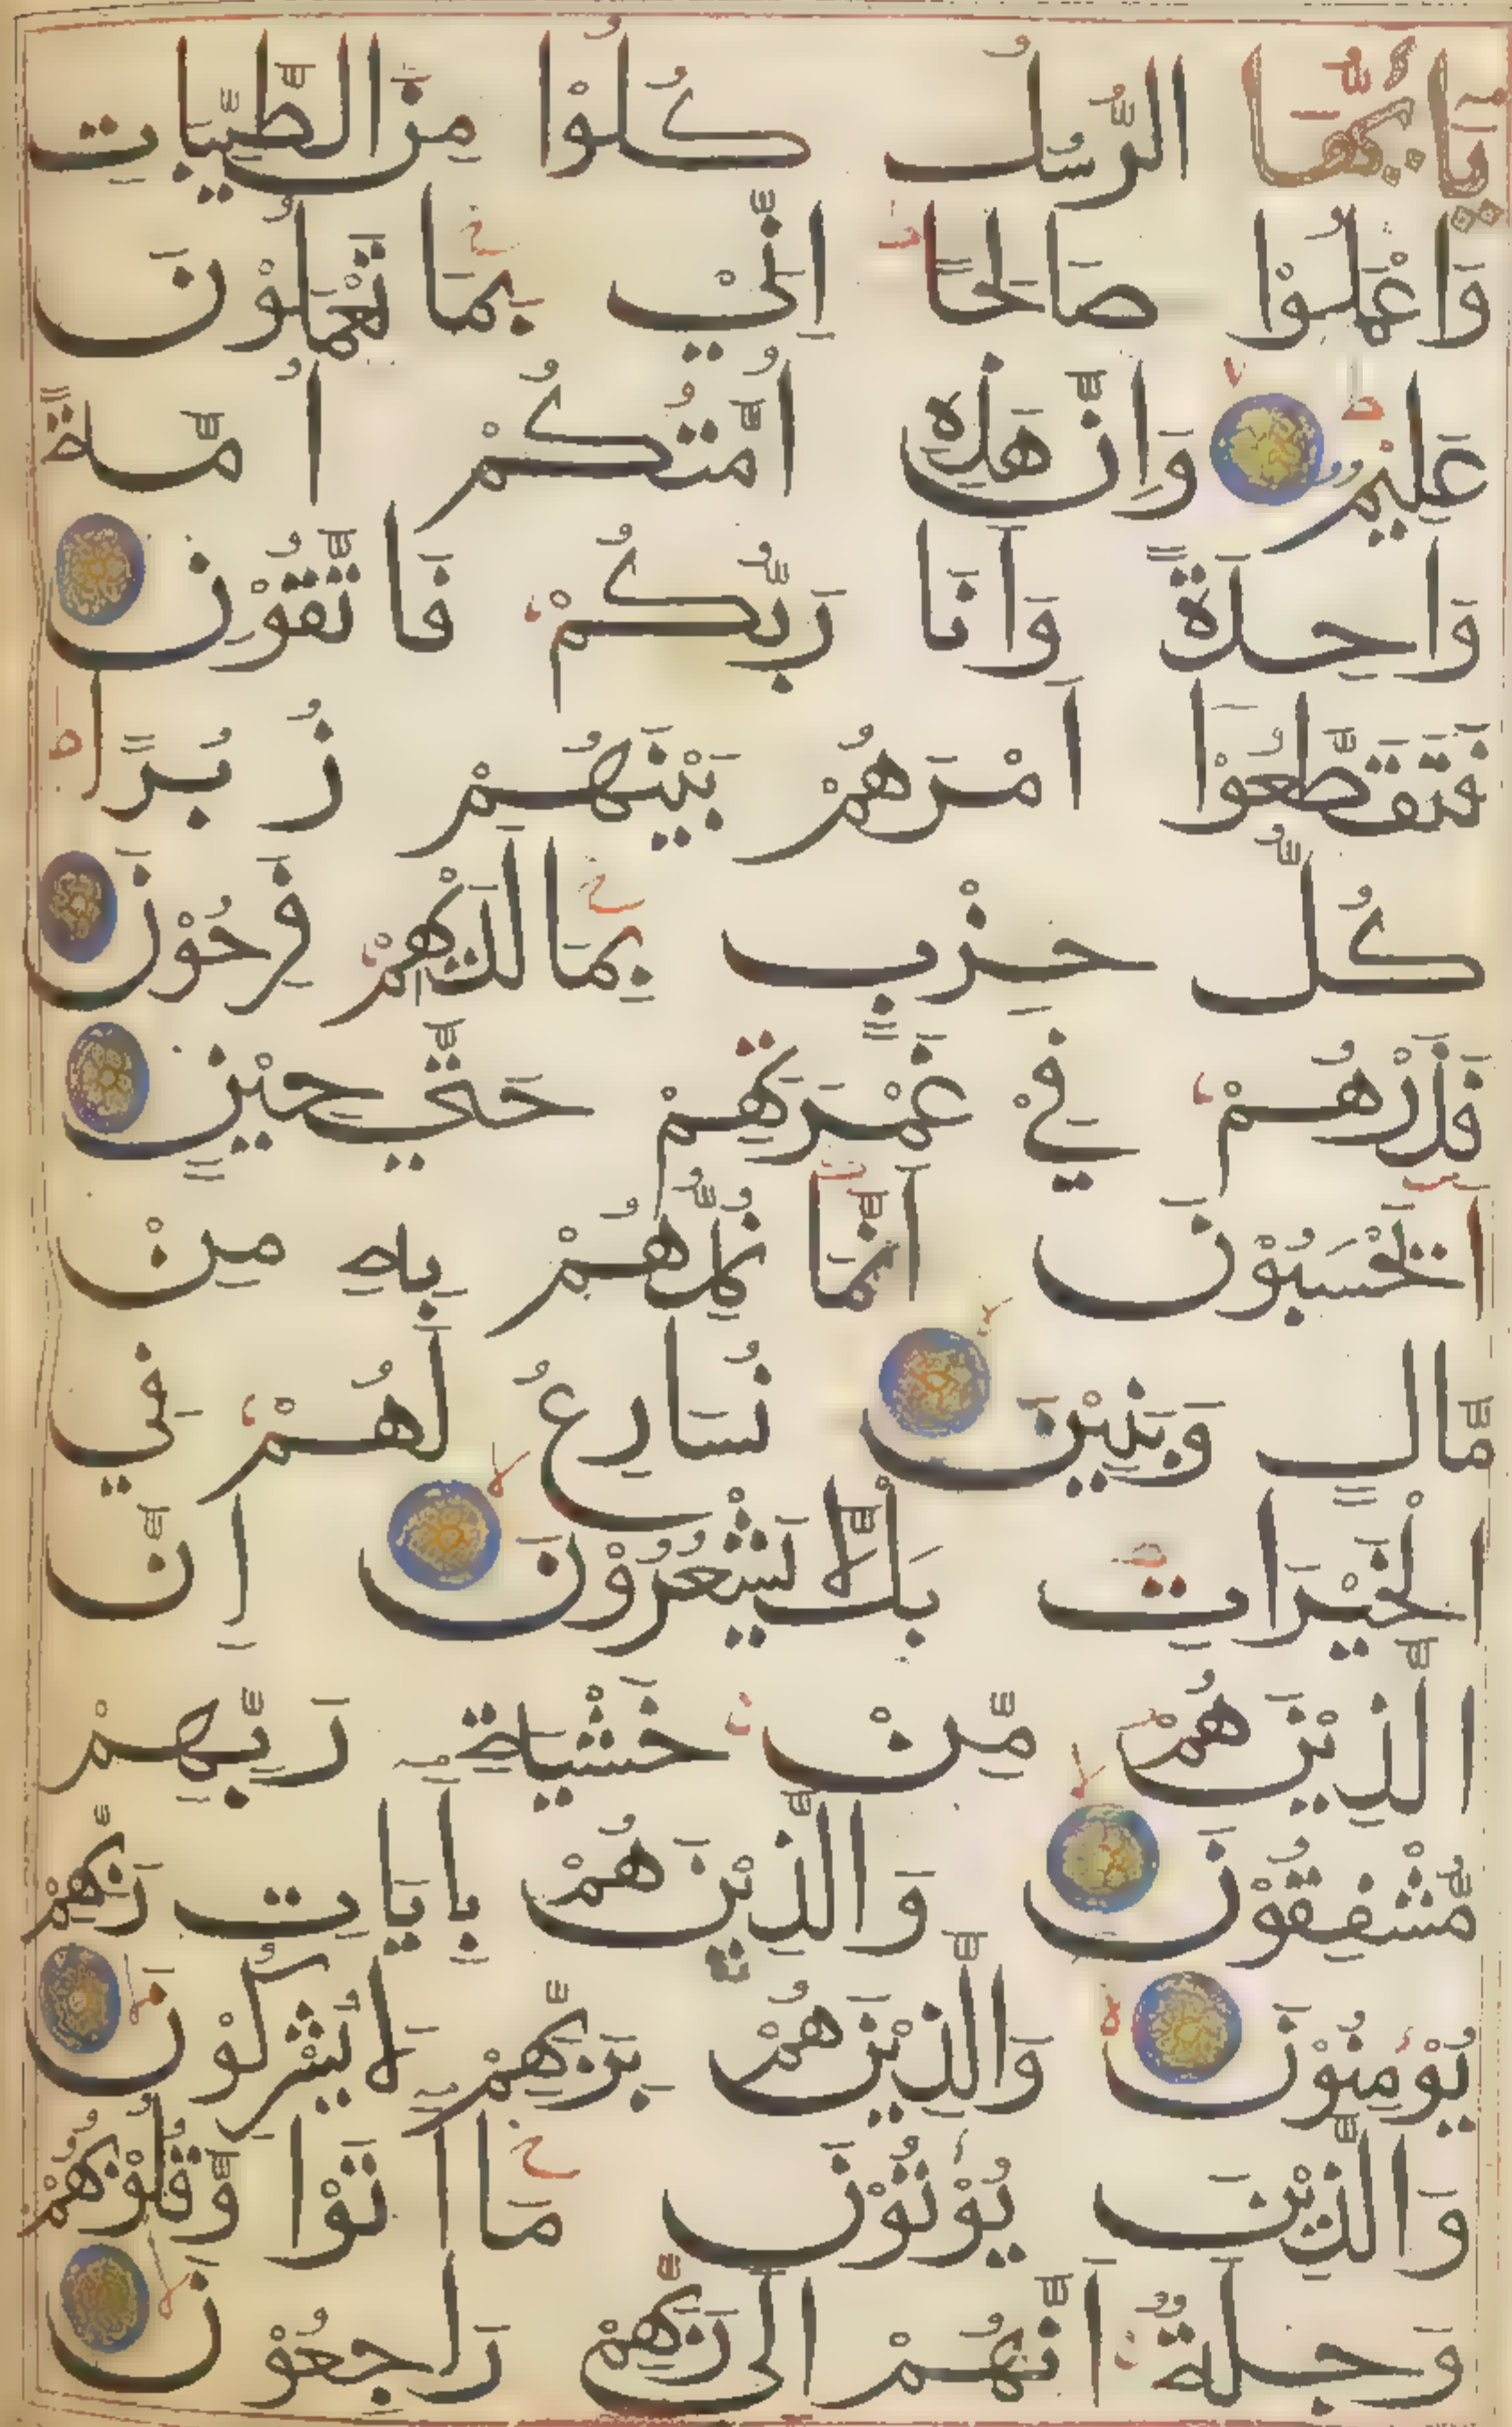 يَاأَيُّهَا الرُّسُلُ كُلُوْا مِنَ الطَّيِّبَاتِ
وَاعْمَلُوْا صَالِحًا اِنِّيْ بِمَا تَعْمَلُوْنَ
عَلِيْمٌ وَاِنَّ هَذِهِ اُمَّتُكُمْ اُمَّةً
وَاحِدَةً وَاَنَا رَبُّكُمْ فَاتَّقُوْنِ
فَتَقَطَّعُوْا اَمْرَهُمْ بَيْنَهُمْ زُبُرًا
كُلُّ حِزْبٍ بِمَا لَدَيْهِمْ فَرِحُوْنَ
فَذَرْهُمْ فِيْ غَمْرَتِهِمْ حَتَّي حِيْنٍ
اَيَحْسَبُوْنَ اَنَّمَا نُمِدُّهُمْ بِهِ مِنْ
مَّالٍ وَبَنِيْنَ نُسَارِعُ لَهُمْ فِي
الْخَيْرَاتِ بَلْ لَّا يَشْعُرُوْنَ اِنَّ
الَّذِيْنَ هُمْ مِّنْ خَشْيَةِ رَبِّهِمْ
مُّشْفِقُوْنَ وَالَّذِيْنَ هُمْ بِاٰيَاتِ رَبِّهِمْ
يُؤْمِنُوْنَ وَالَّذِيْنَ هُمْ بِرَبِّهِمْ لَا يُشْرِكُوْنَ
وَالَّذِيْنَ يُؤْتُوْنَ مَا اٰتَوْا وَّقُلُوْبُهُمْ
وَجِلَةٌ اَنَّهُمْ اِلَى رَبِّهِمْ رَاجِعُوْنَ